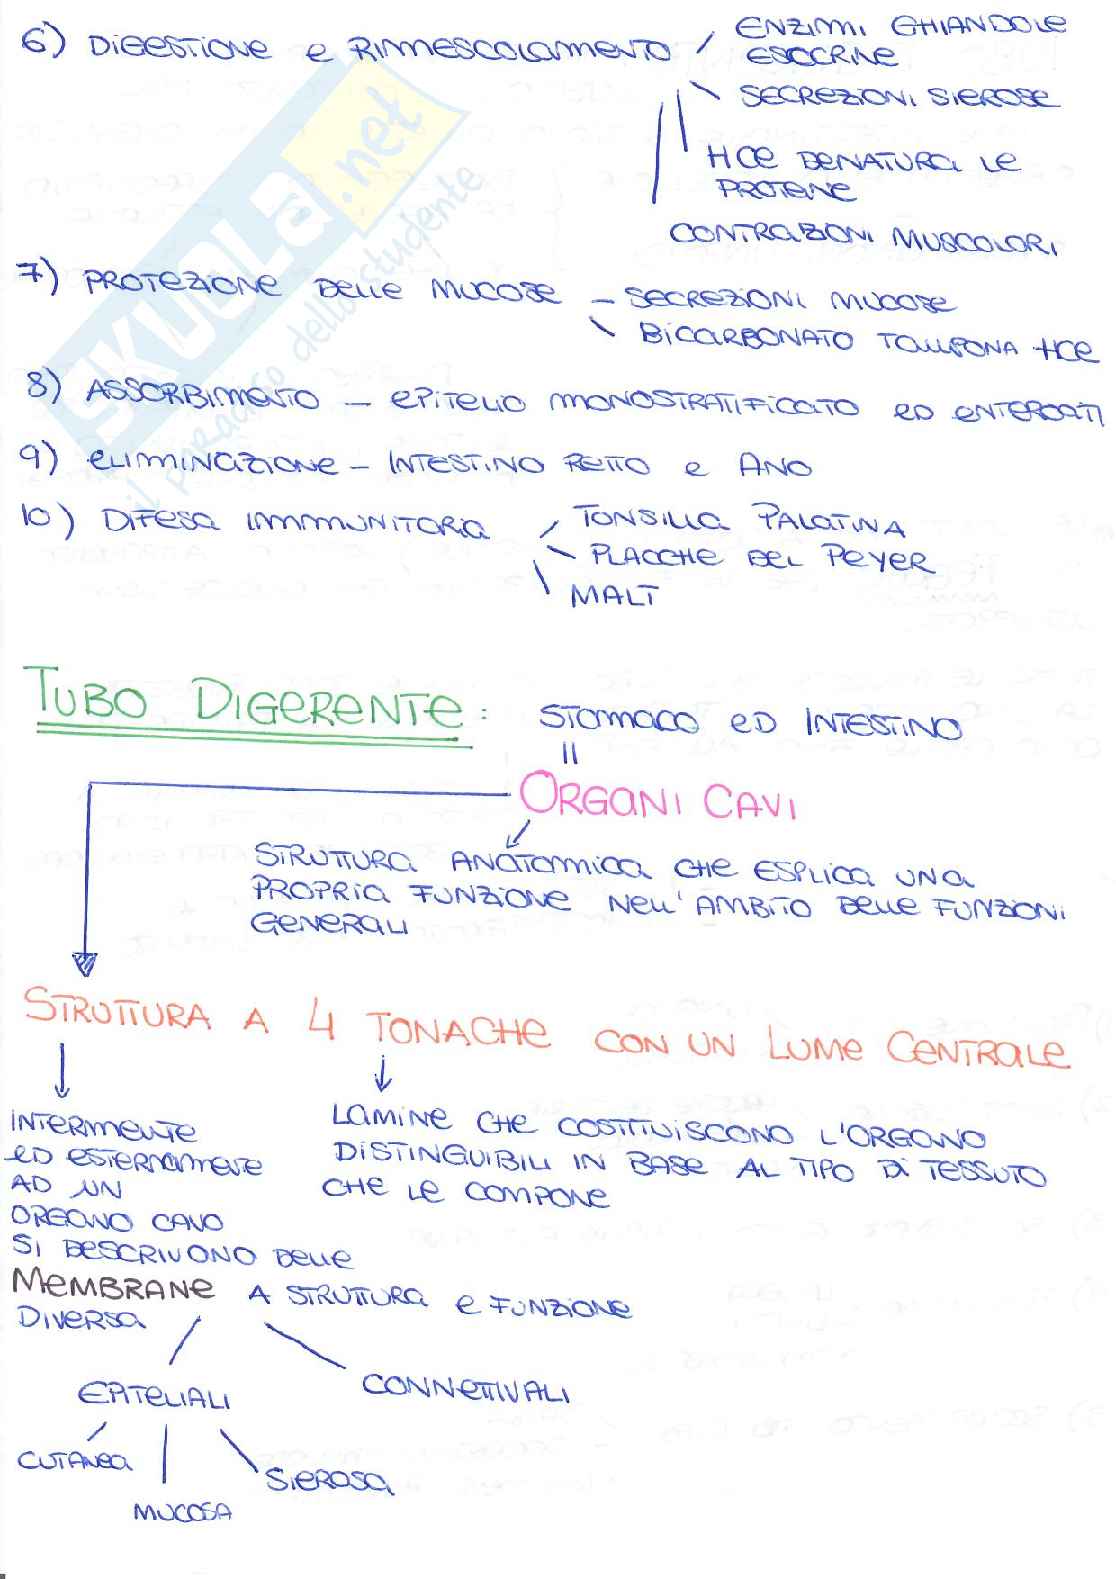 6) DIGESTIONE e RIMESCOLAMENTO
ENZIMI GHIANDOLE
ESOCRINE
SECREZIONI SIEROSE
HCl DENATURA LE
PROTEINE
CONTRAZIONI MUSCOLARI
7) PROTEZIONE DELLE MUCOSE – SECREZIONI MUCOSE
BICARBONATO TAMPONA HCl
8) ASSORBIMENTO – EPITELIO MONOSTRATIFICATO ED ENTEROCITI
9) ELIMINAZIONE – INTESTINO RETTO e ANO
10) DIFESA IMMUNITARIA
TONSILLA PALATINA
PLACCHE DEL PEYER
MALT
TUBO DIGERENTE: STOMACO ED INTESTINO
=
ORGANI CAVI
STRUTTURA ANATOMICA CHE ESPLICA UNA
PROPRIA FUNZIONE NELL'AMBITO DELLE FUNZIONI
GENERALI
STRUTTURA A 4 TONACHE CON UN LUME CENTRALE
INTERMENTE
ED ESTERNAMENTE
AD UN
ORGANO CAVO
SI DESCRIVONO DELLE
MEMBRANE A STRUTTURA e FUNZIONE
DIVERSA
LAMINE CHE COSTITUISCONO L'ORGANO
DISTINGUIBILI IN BASE AL TIPO DI TESSUTO
CHE LE COMPONE
EPITELIALI
CONNETTIVALI
CUTANEA
MUCOSA
SIEROSA
SKUOLA.net
il paradiso dello studente